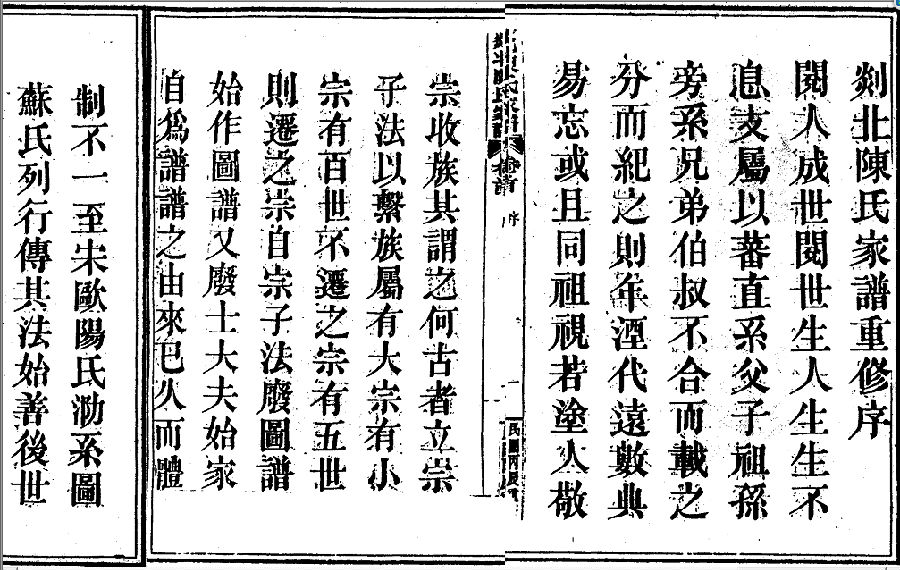 剡北陳氏家譜重修序
閱人成世閱世生人生生不
息支屬以蕃直系父子祖孫
旁系兄弟伯叔不合而載之
分而紀之則年湮代遠數典
易忘或且同祖視若塗人敬
氏家譜
卷首
序
民國丙
宗收族其謂之何古者立宗
子法以繫族屬有大宗有小
宗有百世不遷之宗有五世
則遷之宗自宗子法廢圖譜
始作圖譜又廢士大夫始家
自爲譜譜之由來已久而體
制不一至宋歐陽氏泐系圖
蘇氏列行傳其法始善後世